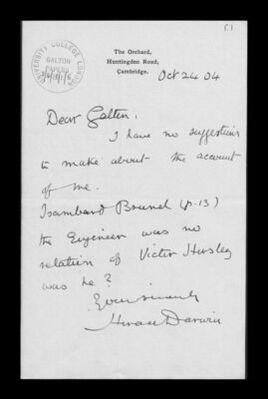 r.1
UNIVERSITY COLLEGE LONDON
GALTON
PAPERS
The Orchard,
Huntingdon Road,
Cambridge.
Oct 24 04
Dear Galton,
I have no suggestions
to make about the account
of me.
Isambard Brunel (p. 13)
the Engineer was no
relation of Victor Horsley
was he?
Yours sincerely
Horace Darwin